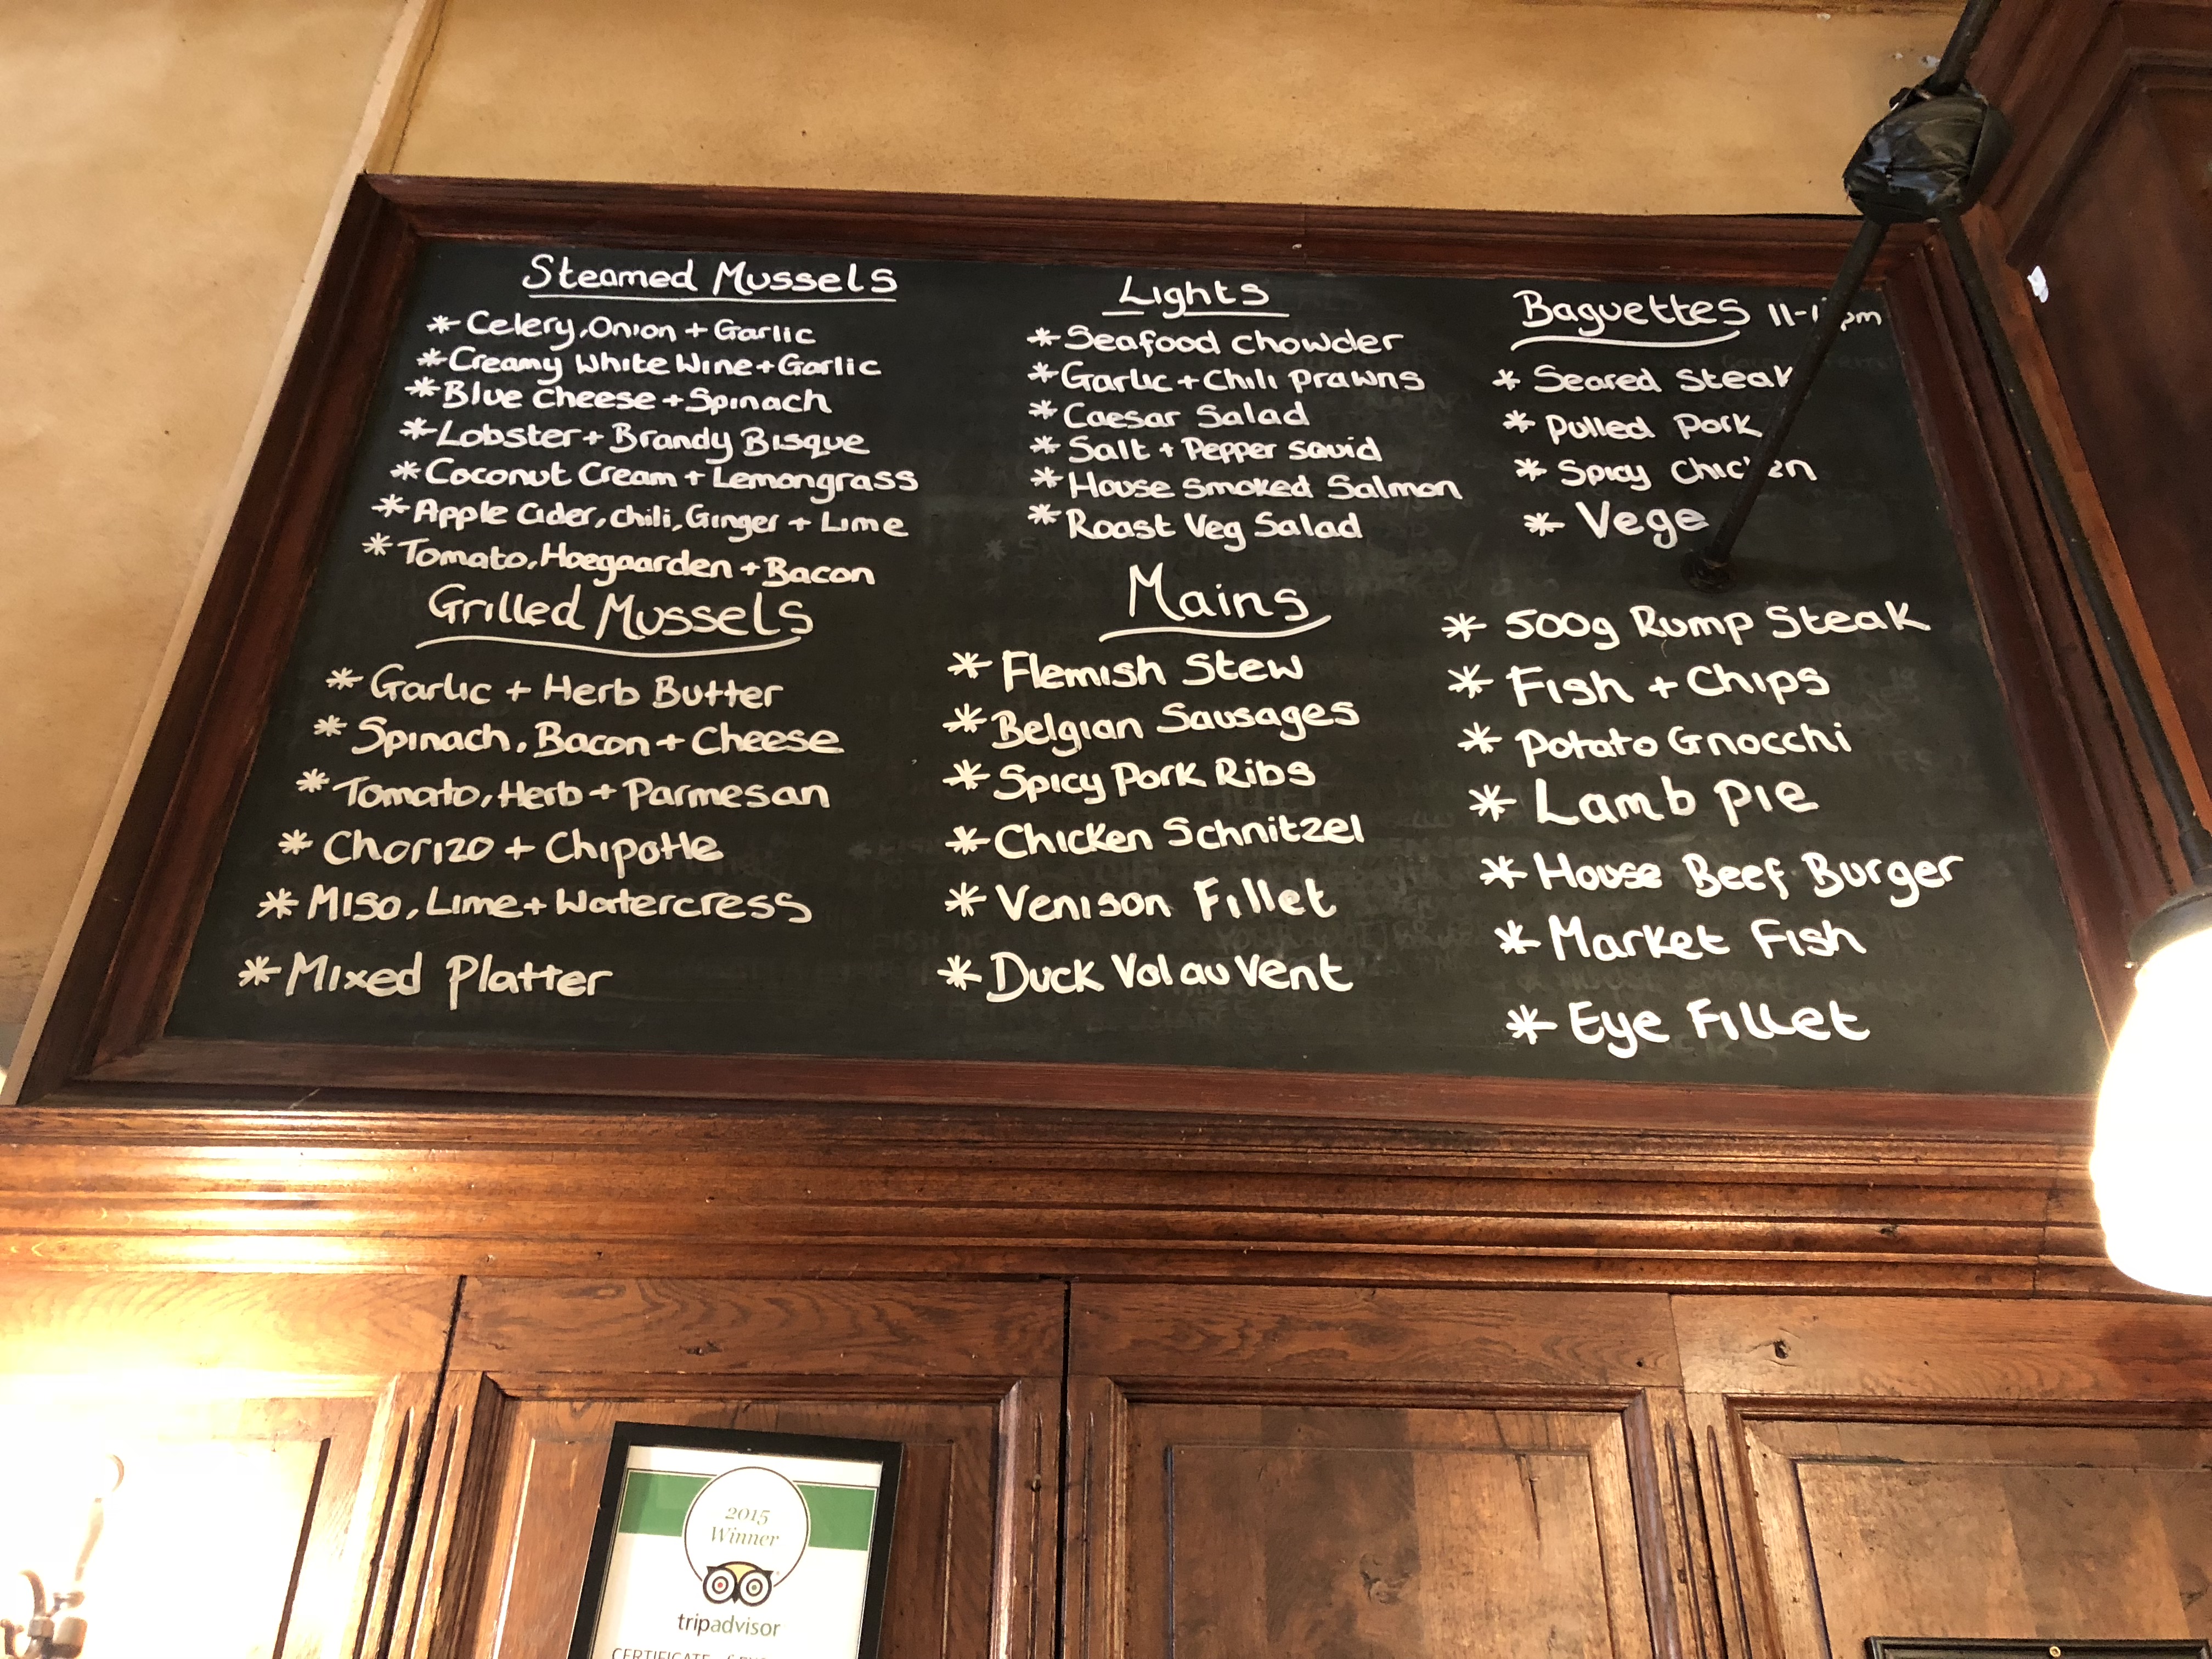 Steamed Mussels
* Celery, Onion + Garlic
* Creamy White Wine + Garlic
* Blue Cheese + Spinach
* Lobster + Brandy Bisque
* Coconut Cream + Lemongrass
* Apple Cider, Chili, Ginger + Lime
* Tomato, Hoegaarden + Bacon
Grilled Mussels
* Garlic + Herb Butter
* Spinach, Bacon + Cheese
* Tomato, Herb + Parmesan
* Chorizo + Chipotle
* Miso, Lime + Watercress
* Mixed Platter
Lights
* Seafood Chowder
* Garlic + Chili Prawns
* Caesar Salad
* Salt + Pepper Squid
* House Smoked Salmon
* Roast Veg Salad
Baguettes
* Seared Steak
* Pulled Pork
* Spicy Chicken
* Vege
Mains
* Flemish Stew
* Belgian Sausages
* Spicy Pork Ribs
* Chicken Schnitzel
* Venison Fillet
* Duck Vol au Vent
* 500g Rump Steak
* Fish + Chips
* Potato Gnocchi
* Lamb Pie
* House Beef Burger
* Market Fish
* Eye Fillet
2015
Winner
tripadvisor
CERTIFICATE